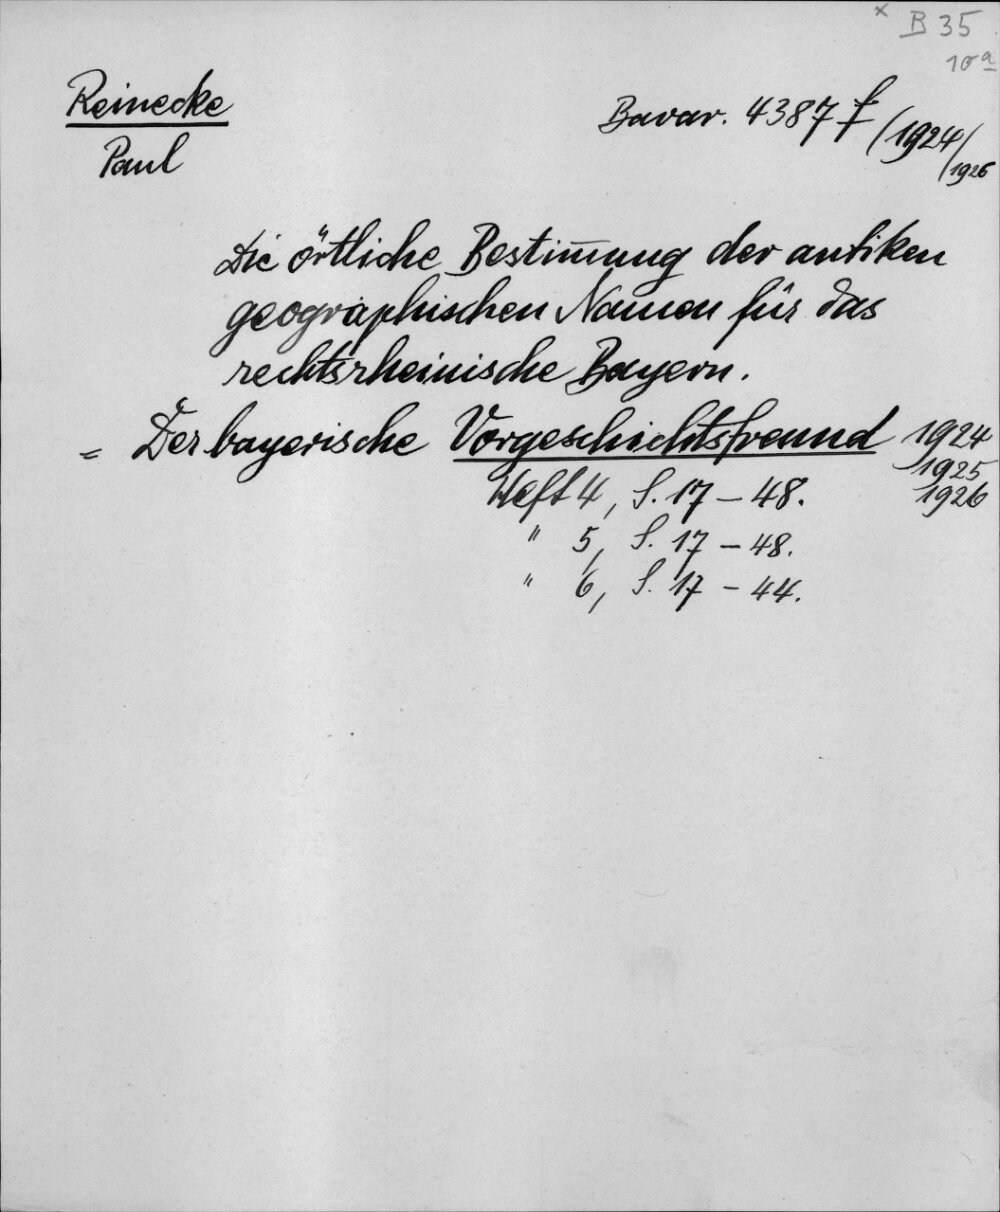 x B 35
10a
Reinecke
Bavar. 4387 f (1924/
/1926
Paul
Die örtliche Bestim̅ung der antiken
geographischen Namen für das
rechtsrheinische Bayern.
= Der bayerische Vorgeschichtsfreund 1924
1925
Heft 4, S. 17 – 48. 1926
" 5, S. 17 – 48.
" 6, S. 17 – 44.